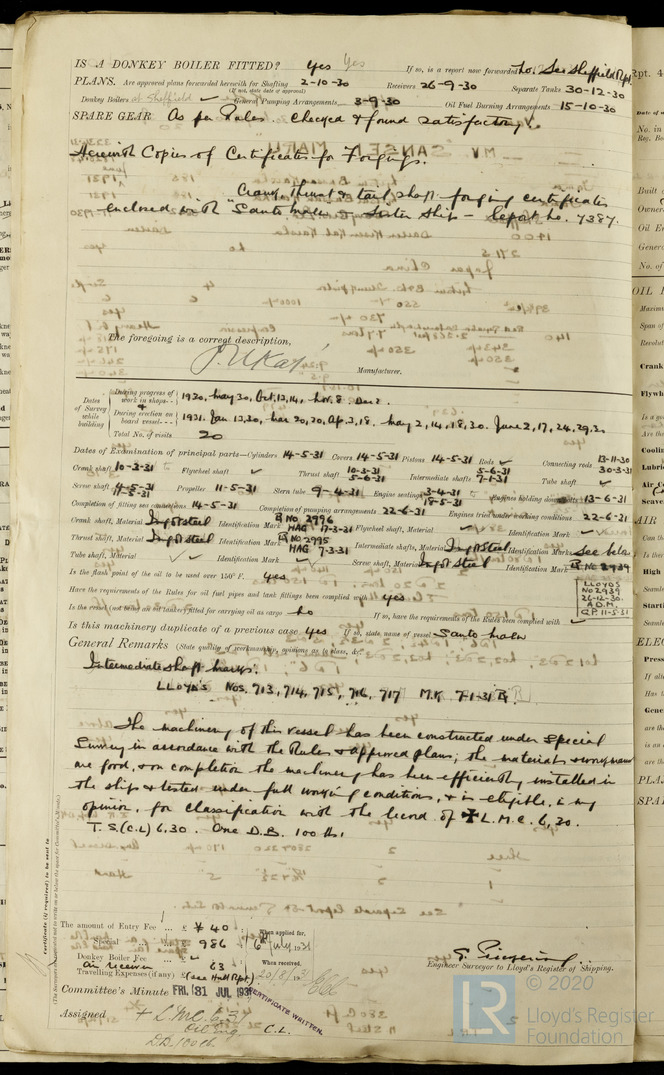 IS A DONKEY BOILER FITTED? Yes Yes If so, is a report now forwarded? No. See Sheffield Rpt.
PLANS. Are approved plans forwarded herewith for Shafting 2-10-30 Receivers 26-9-30 Separate Tanks 30-12-30
(If not, state date of approval)
Donkey Boilers at Sheffield ✓ General Pumping Arrangements 3-9-30 Oil Fuel Burning Arrangements 15-10-30
SPARE GEAR As per Rules. Checked & found satisfactory.
Herewith Copies of Certificates for Forgings.
Crank, Thrust & tail shaft forging certificates
enclosed with "Santo Maru" Sister Ship - Report No. 7387.
The foregoing is a correct description,
Manufacturer.
Dates of Survey while building
During progress of work in shops - - 1930, May 30, Oct. 13, 14, Nov. 8 Dec 2.
During erection on board vessel - - 1931. Jan 13, 30, Mar 20, 20, Ap. 3, 18, May 2, 14, 18, 30. June 2, 17, 24, 29, 30
Total No. of visits 20
Dates of Examination of principal parts—Cylinders 14-5-31 Covers 14-5-31 Pistons 14-5-31 Rods ✓ Connecting rods 13-11-30 30-3-31
Crank shaft 10-3-31 Flywheel shaft ✓ Thrust shaft 10-3-31 5-6-31 Intermediate shafts 5-6-31 7-1-31 Tube shaft ✓
Screw shaft 4-5-31 11-5-31 Propeller 11-5-31 Stern tube 9-4-31 Engine seatings 3-4-31 18-5-31 Engines holding down bolts 13-6-31
Completion of fitting sea connections 14-5-31 Completion of pumping arrangements 22-6-31 Engines tried under working conditions 22-6-31
Crank shaft, Material Ingot steel Identification Mark No 2996 HAG 7-3-31 Flywheel shaft, Material ✓ Identification Mark ✓
Thrust shaft, Material Ingot steel Identification Mark No 2995 HAG 7-3-31 Intermediate shafts, Material Ingot Steel Identification Marks See below
Tube shaft, Material ✓ Identification Mark ✓ Screw shaft, Material Ingot Steel Identification Mark No 2939
LLOYDS
No 2939
26-12-30.
A.D.M.
G.P. 11-5-31
Is the flash point of the oil to be used over 150° F. yes
Have the requirements of the Rules for oil fuel pipes and tank fittings been complied with yes
Is the vessel (not being an oil tanker) fitted for carrying oil as cargo No If so, have the requirements of the Rules been complied with ✓
Is this machinery duplicate of a previous case yes If so, state name of vessel Santo Maru
General Remarks (State quality of workmanship, opinions as to class, &c.
Intermediate shaft marks:
LLOYD'S Nos. 713, 714, 715, 716, 717 M.K 7-1-31
The machinery of this vessel has been constructed under Special
Survey in accordance with the Rules & approved plans; the materials & workmanship
are good, & on completion the machinery has been efficiently installed in
the ship & tested under full working conditions, & is eligible, in my
opinion, for classification with the record of ✠ L.M.C. 6, 30.
T.S.(C.L) 6.30. One D.B. 100 lbs.
Certificate (if required) to be sent to
The amount of Entry Fee ... £ ¥ 40
Special ... £ 986
Donkey Boiler Fee ... £ ✓
Air receiver 63
Travelling Expenses (if any) £ (see Hull Rpt)
When applied for, 6th July 1931
When received, 20/8/31
Engineer Surveyor to Lloyd's Register of Shipping.
Committee's Minute FRI. 31 JUL 1931
CERTIFICATE WRITTEN.
Assigned + L.M.C. 6.31
Oil Eng. C.L.
D.B. 100 lb.
© 2020
LR
Lloyd's Register
Foundation